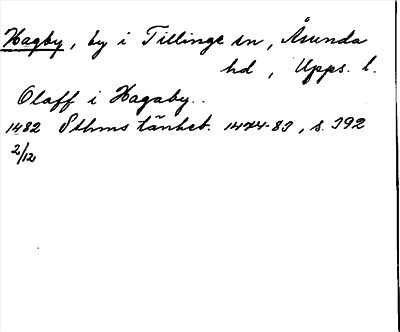 Hagby, by i Tillinge sn, Åsunda
hd, Upps. l.
Olaff i Hagaby..
1482 Sthms tänkeb. 1474-83, s. 392
2/12